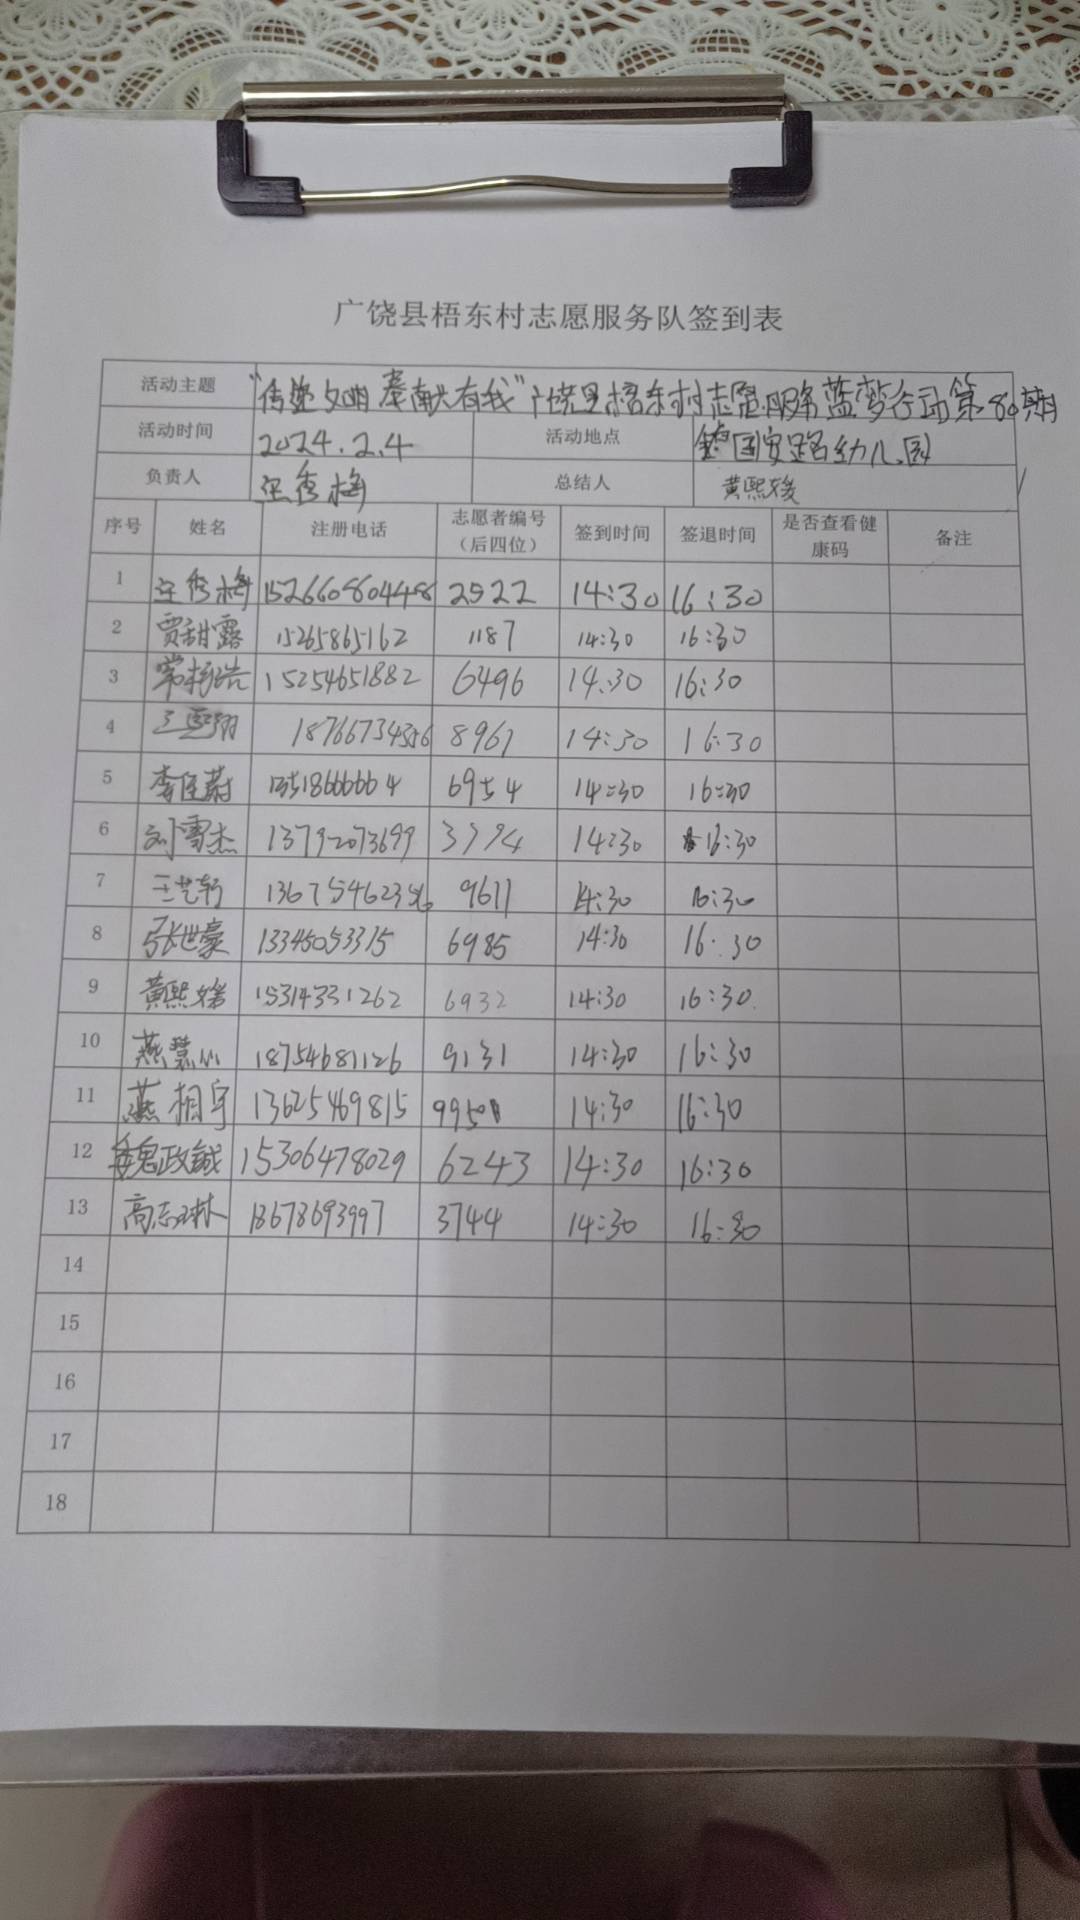 广饶县梧东村志愿服务队签到表
活动主题 "传递文明 奉献有我"广饶县梧东村志愿服务蓝梦行动第80期
活动时间 2024.2.4 活动地点 国安路幼儿园
负责人 秀梅 总结人 黄熙媛
序号 姓名 注册电话 志愿者编号（后四位） 签到时间 签退时间 是否查看健康码 备注
1 秀梅 15266080448 2522 14:30 16:30
2 贾甜露 15265865162 1187 14:30 16:30
3 常 15254651882 6496 14:30 16:30
4 王 8961 14:30 16:30
5 李 6954 14:30 16:30
6 刘雪杰 13792073699 14:30 16:30
7 王艺轩 9611 14:30 16:30
8 张世豪 13345053315 6985 14:30 16:30
9 黄熙媛 15314331262 6932 14:30 16:30
10 燕慧 18754681126 9131 14:30 16:30
11 燕相宇 13625469815 9950 14:30 16:30
12 魏政鋮 15306478029 6243 14:30 16:30
13 高志琳 18678693997 3744 14:30 16:30
14
15
16
17
18